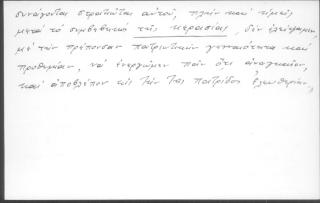 συνάγονται στρατιῶται αὐτοῦ, πλὴν καὶ ἡμεῖς,
μετὰ τὸ συμβεβηκὸς τῆς κερασιᾶς, δὲν ἐλείψαμεν
μὲ τὴν πρέπουσαν πατριωτικὴν γενναιότητα καὶ
προθυμίαν, νὰ ἐνεργῶμεν πᾶν ὅτι ἀναγκαῖον,
καὶ ἀποβλέπον εἰς τὴν τῆς πατρίδος ἐλευθερίαν,